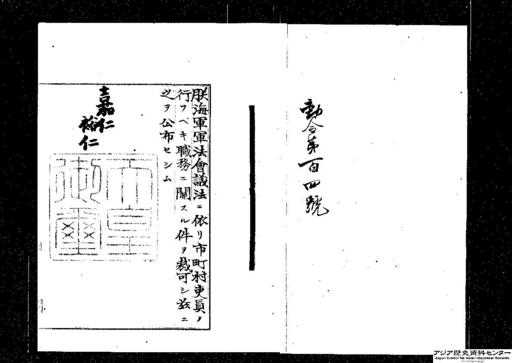 勅令第百四號
朕海軍軍法會議法ニ依リ市町村吏員ノ
行フベキ職務ニ關スル件ヲ裁可シ茲ニ
之ヲ公布セシム
嘉仁
裕仁
天皇
御璽
アジア歴史資料センター
Japan Center for Asian Historical Records